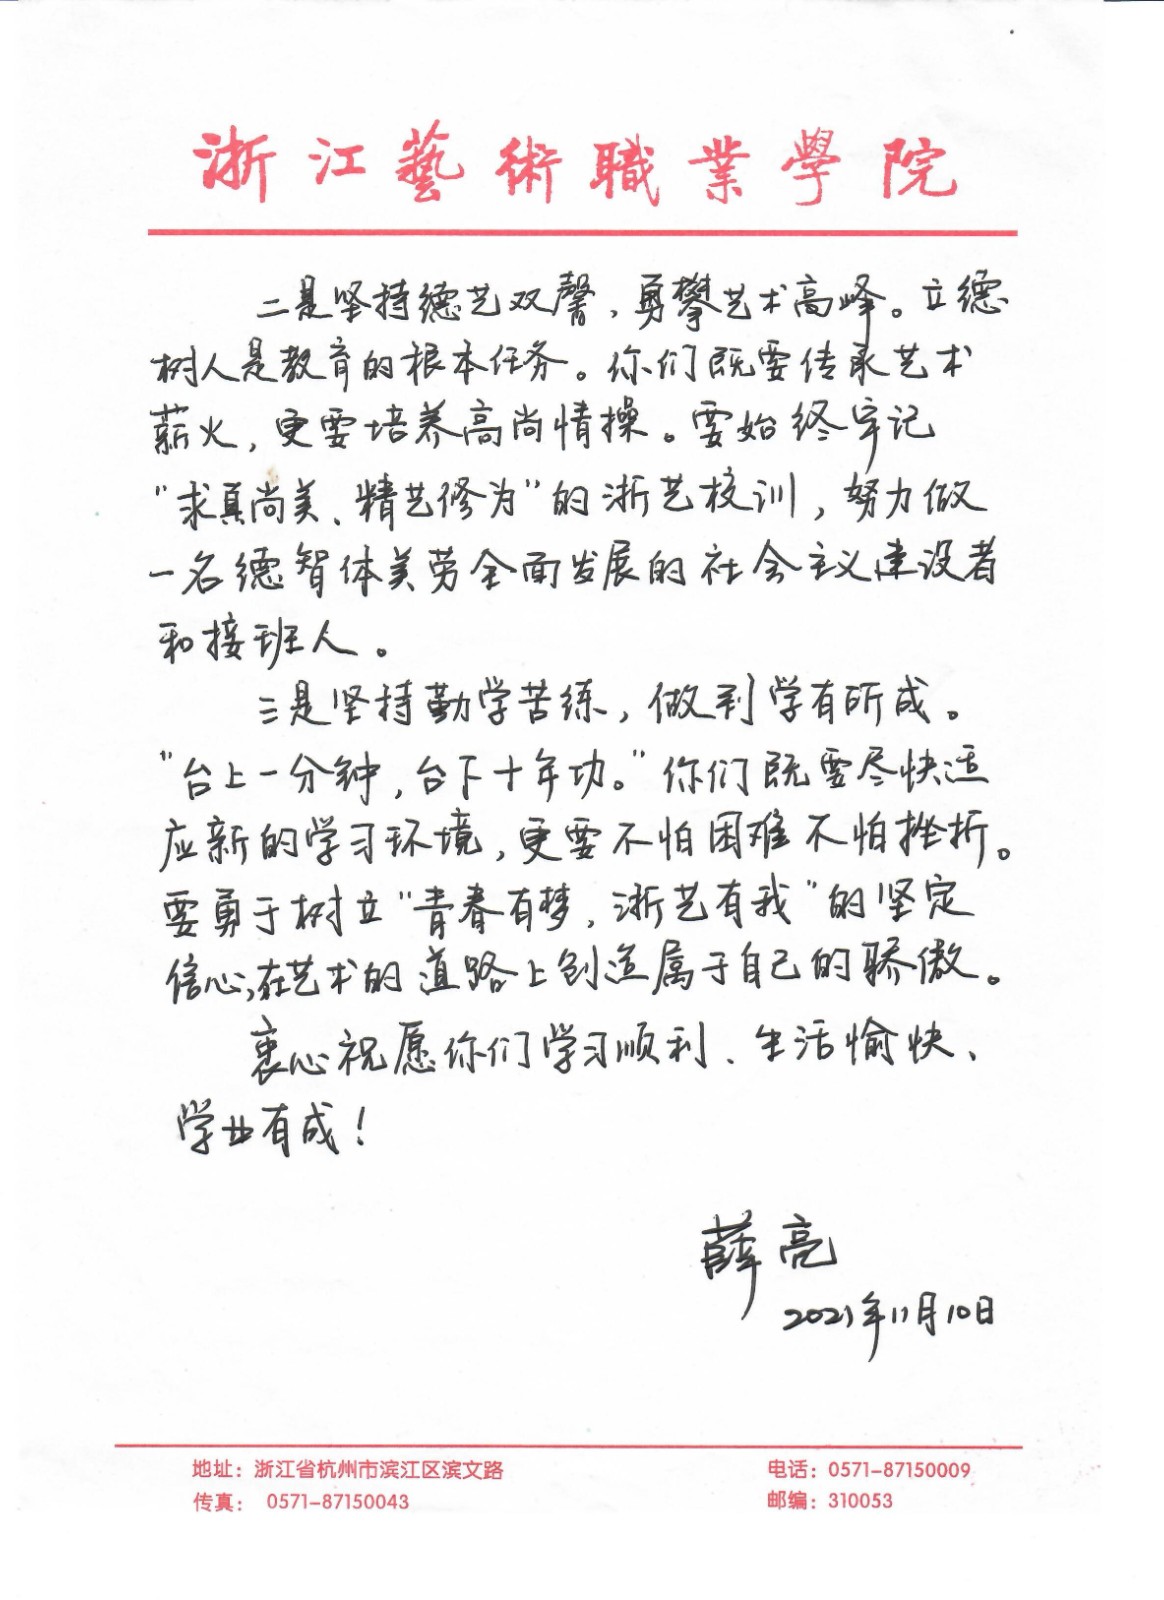 浙江藝術職業學院
二是坚持德艺双馨，勇攀艺术高峰。立德
树人是教育的根本任务。你们既要传承艺术
薪火，更要培养高尚情操。要始终牢记
“求真尚美、精艺修为”的浙艺校训，努力做
一名德智体美劳全面发展的社会主义建设者
和接班人。
三是坚持勤学苦练，做到学有所成。
“台上一分钟，台下十年功。”你们既要尽快适
应新的学习环境，更要不怕困难不怕挫折。
要勇于树立“青春有梦，浙艺有我”的坚定
信心，在艺术的道路上创造属于自己的骄傲。
衷心祝愿你们学习顺利、生活愉快、
学业有成！
薛亮
2021年11月10日
地址：浙江省杭州市滨江区滨文路 电话：0571-87150009
传真： 0571-87150043 邮编：310053